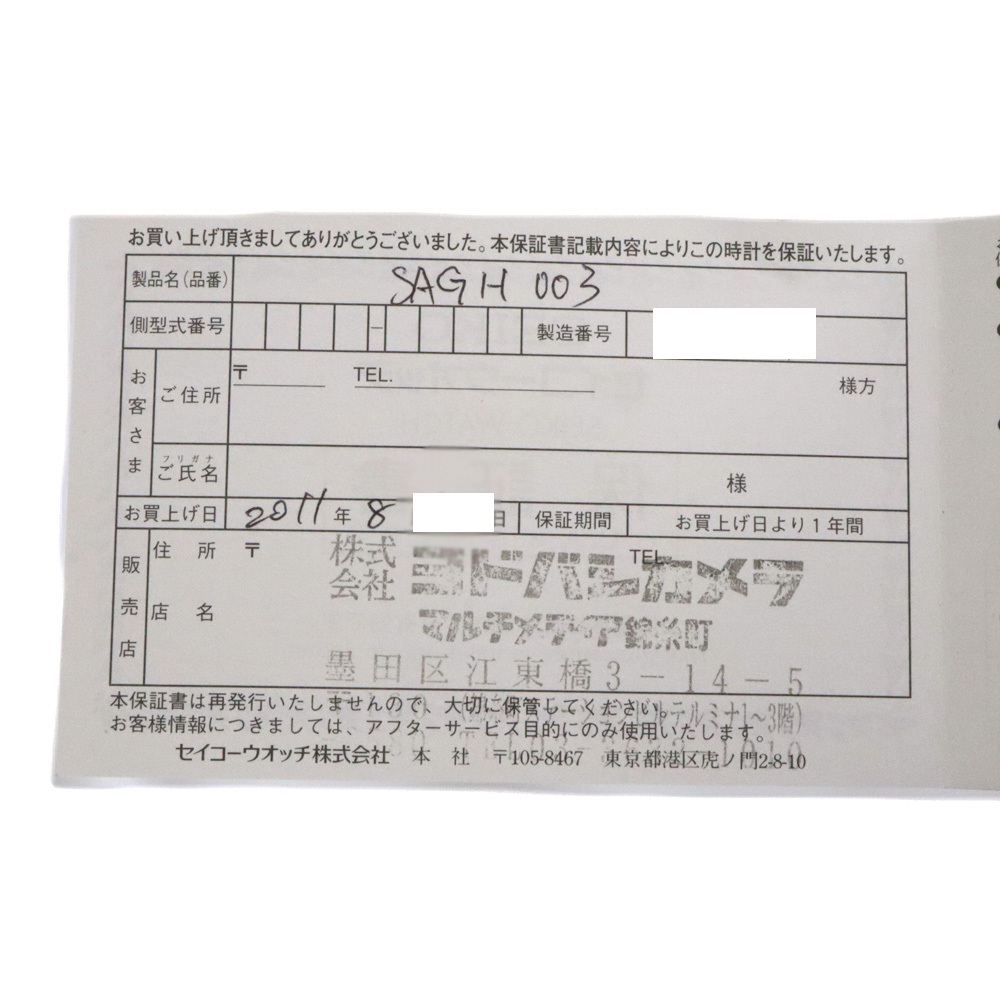 お買い上げ頂きましてありがとうございました。本保証書記載内容によりこの時計を保証いたします。
製品名(品番) SAGH 003
側型式番号 － 製造番号
お客さま ご住所 〒 TEL. 様方
フリガナ
ご氏名 様
お買上げ日 2011 年 8 日 保証期間 お買上げ日より1年間
販売店 住所 〒 TEL.
株式会社 ヨドバシカメラ
店名
マルチメディア錦糸町
墨田区江東橋3－14－5
テルミナ1～3階)
1010
本保証書は再発行いたしませんので、大切に保管してください。
お客様情報につきましては、アフターサービス目的にのみ使用いたします。
セイコーウオッチ株式会社 本社 〒105-8467 東京都港区虎ノ門2-8-10